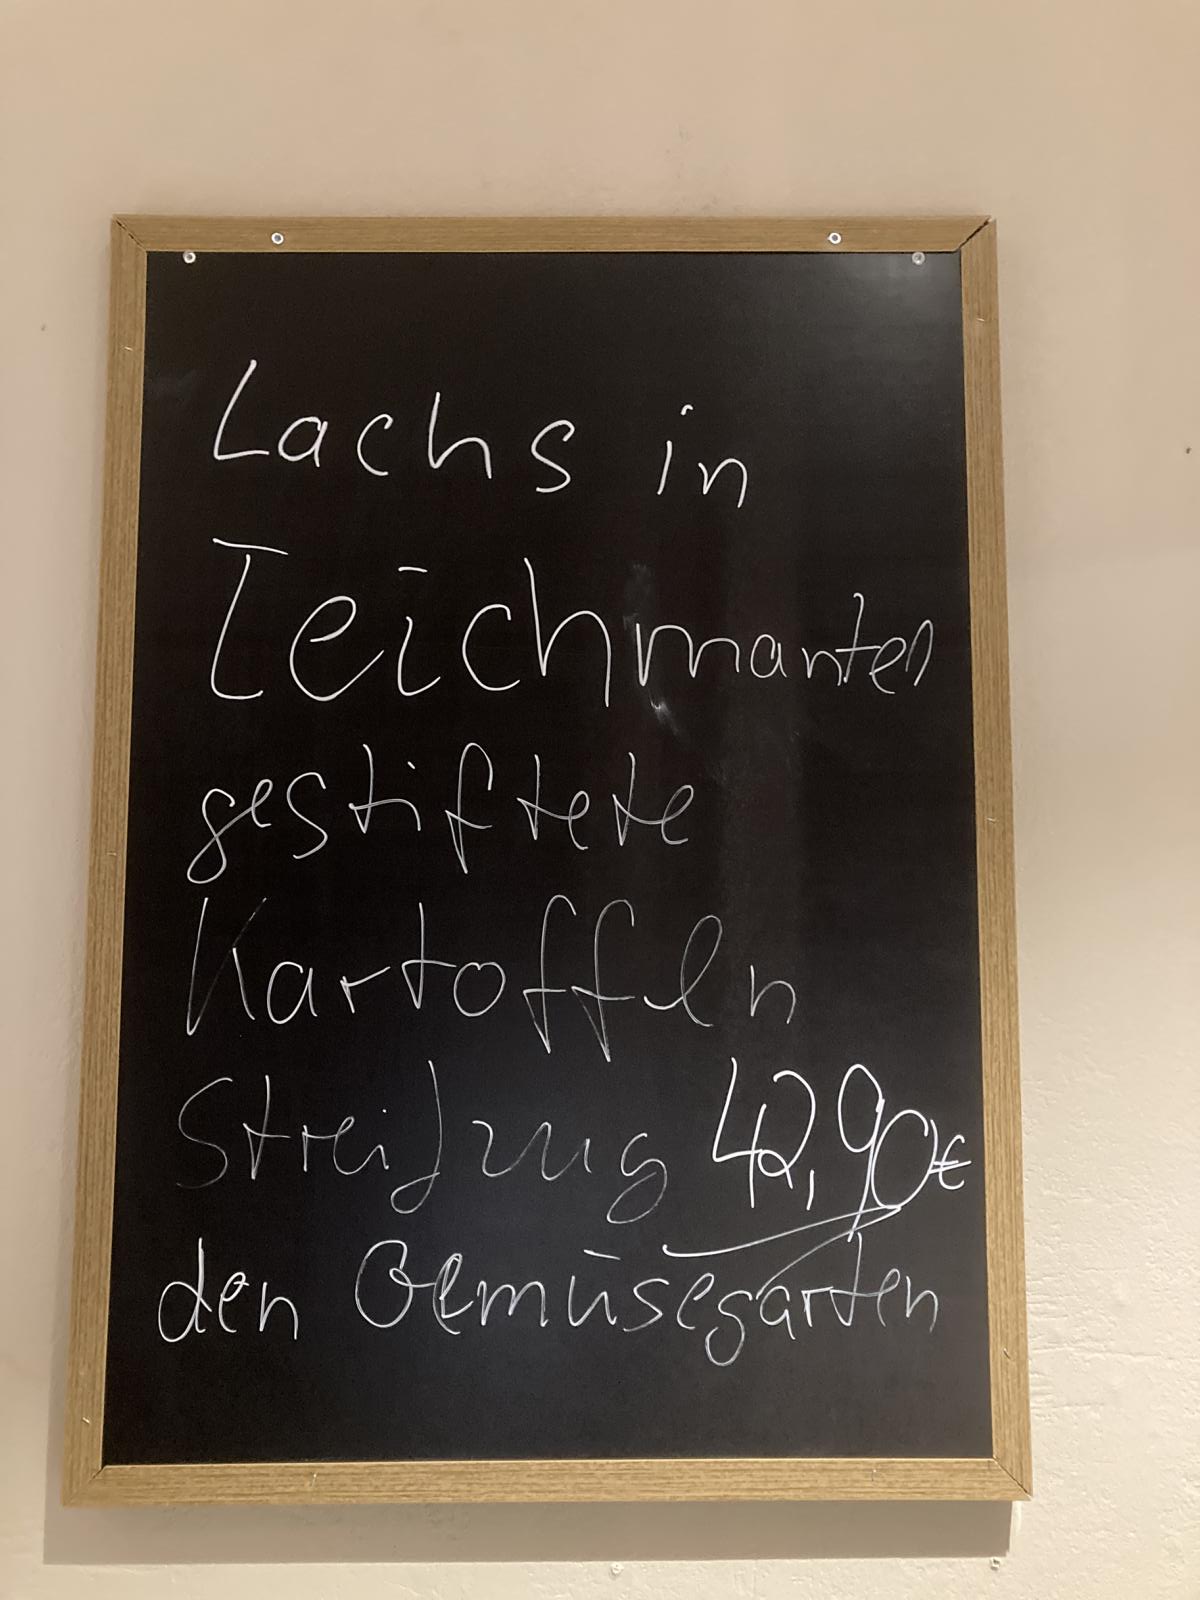 Lachs in
Teichmantel
gestiftete
Kartoffeln
Streifzug 42,90€
den Gemüsegarten